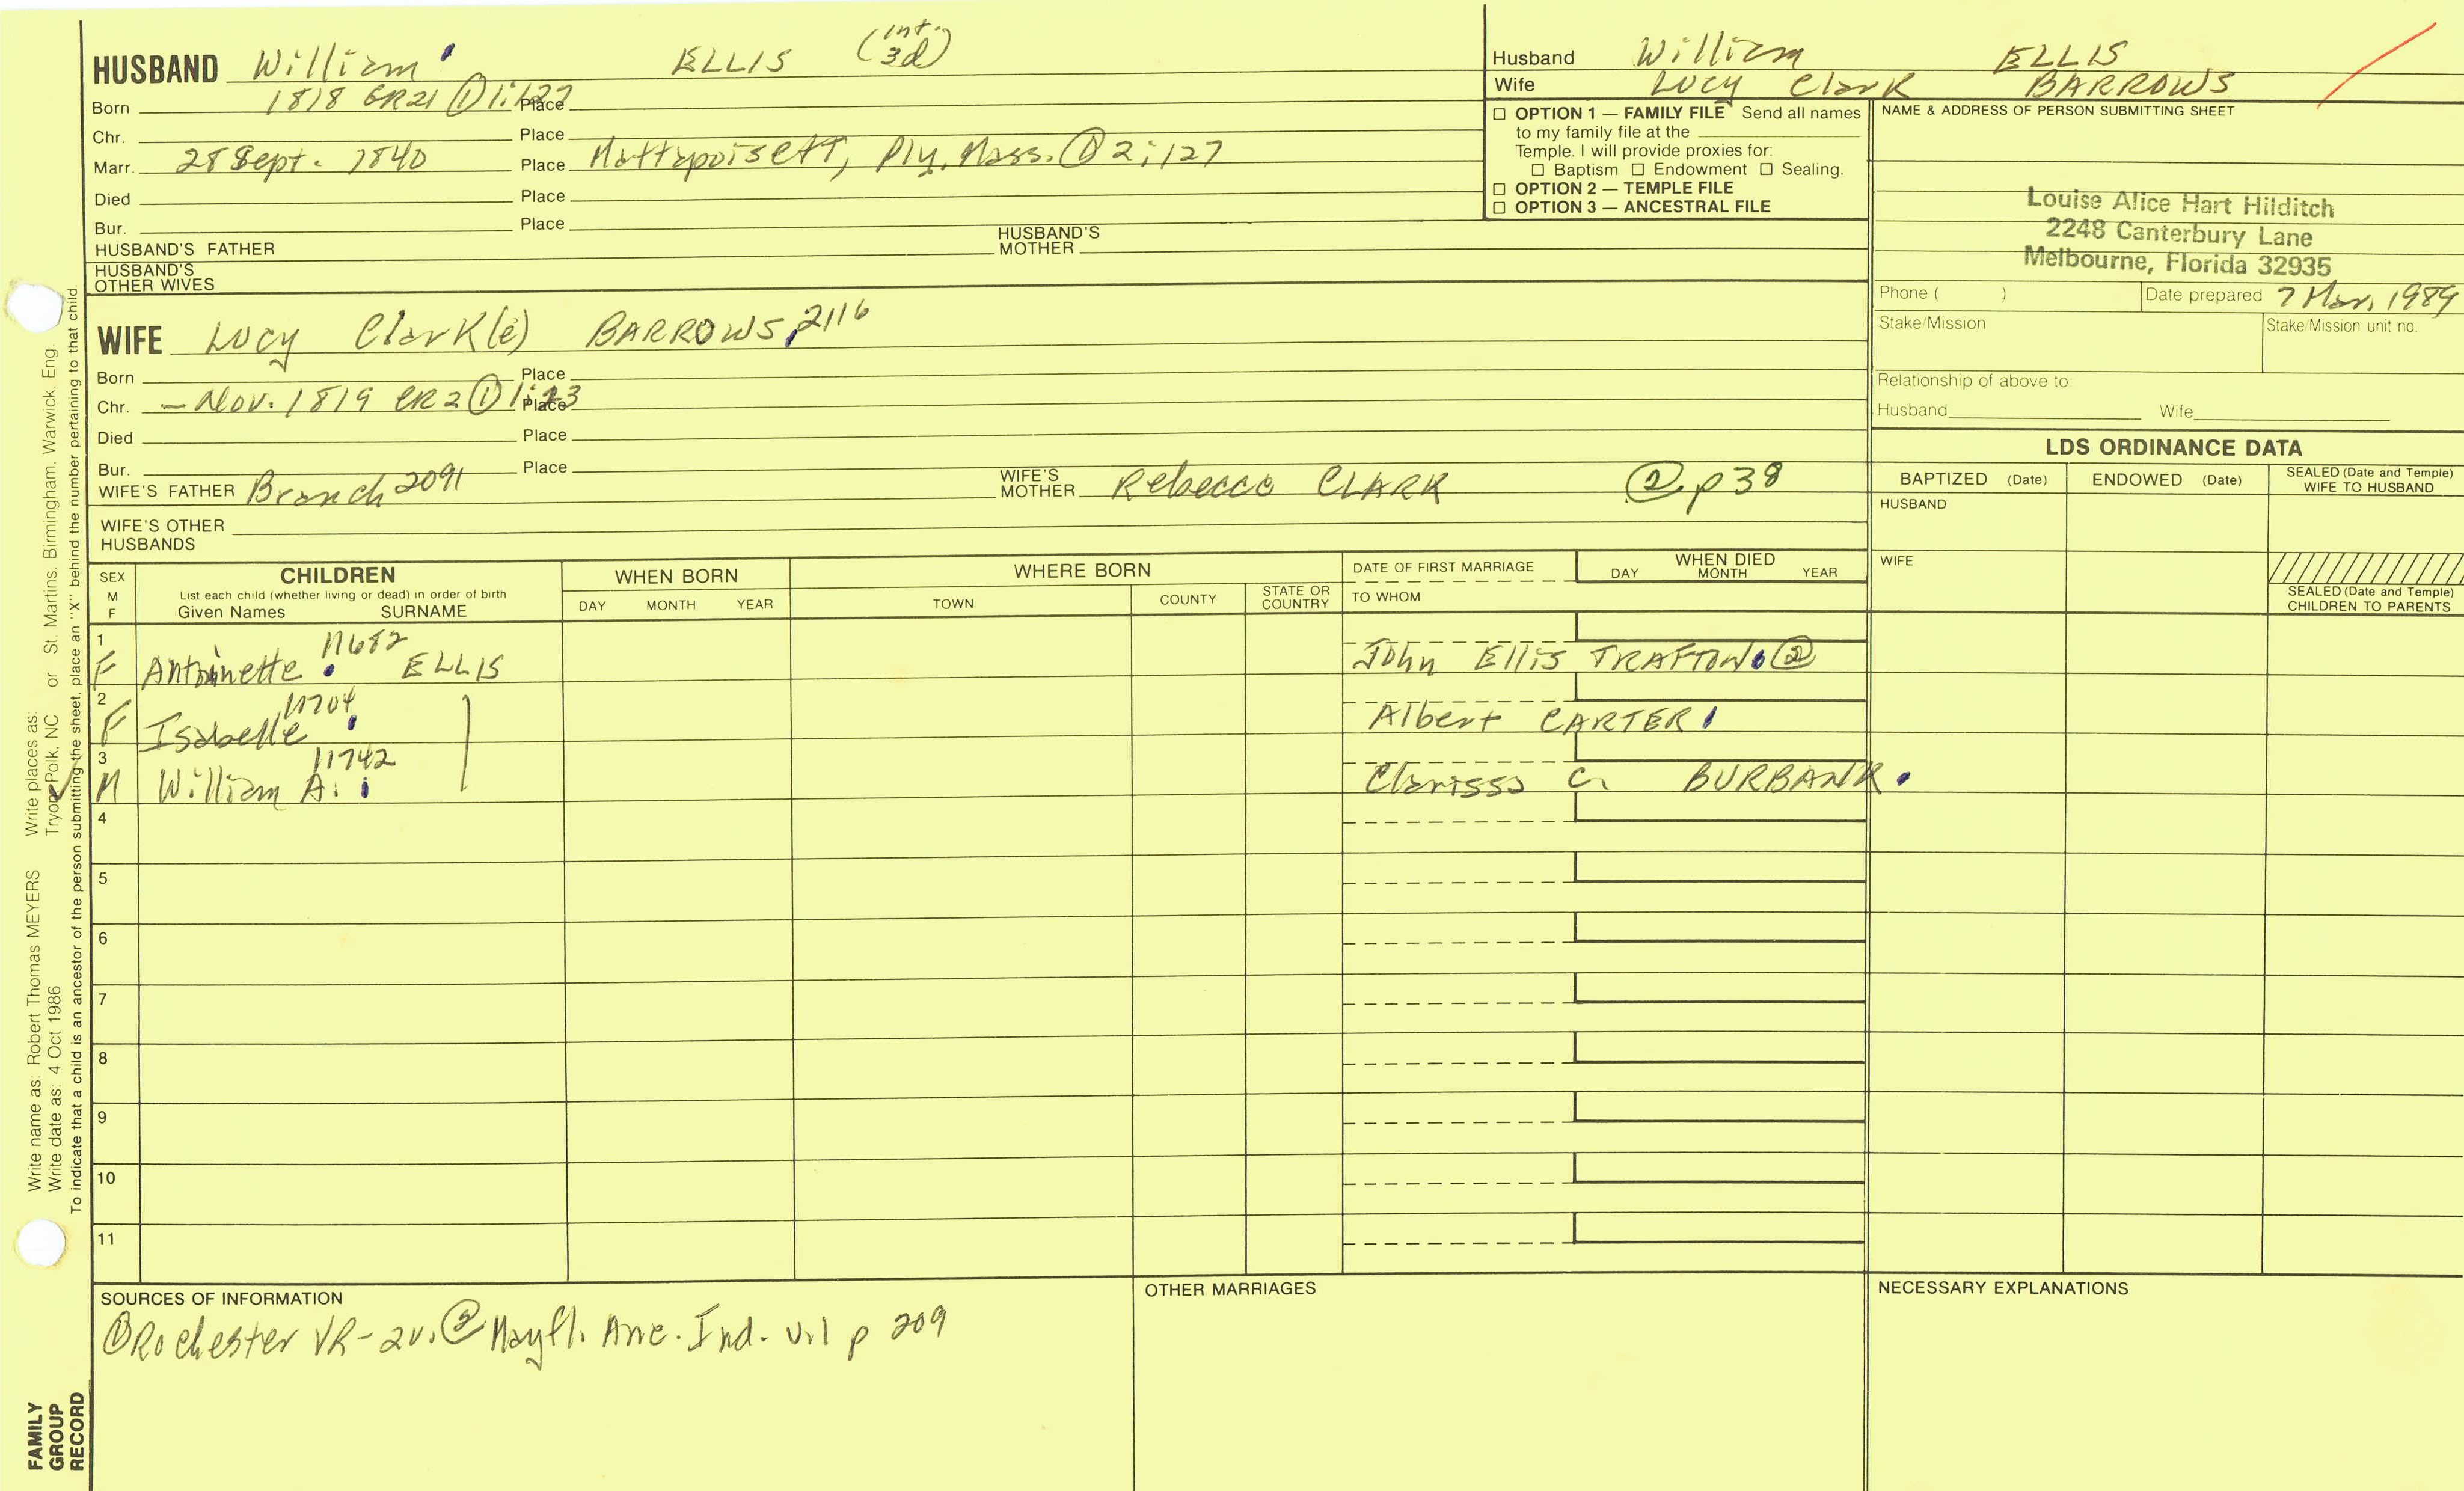 HUSBAND William ELLIS (int. 3d)
Born 1818 GR21 ① 1:127 Place
Chr. Place
Marr. 28 Sept. 1840 Place Mattapoisett, Ply, Mass. ① 2:127
Died Place
Bur. Place
HUSBAND'S FATHER HUSBAND'S MOTHER
HUSBAND'S OTHER WIVES
Husband William ELLIS
Wife Lucy Clark BARROWS
☐ OPTION 1 — FAMILY FILE Send all names
to my family file at the
Temple. I will provide proxies for:
☐ Baptism ☐ Endowment ☐ Sealing.
☐ OPTION 2 — TEMPLE FILE
☐ OPTION 3 — ANCESTRAL FILE
NAME & ADDRESS OF PERSON SUBMITTING SHEET
Louise Alice Hart Hilditch
2248 Canterbury Lane
Melbourne, Florida 32935
Phone ( ) Date prepared 7 Mar, 1989
Stake/Mission Stake/Mission unit no.
Relationship of above to
Husband Wife
WIFE Lucy Clark(e) BARROWS, 2116
Born Place
Chr. — Nov. 1819 CR2 ① 1:23 Place
Died Place
Bur. Place
WIFE'S FATHER Branch 2091 WIFE'S MOTHER Rebecca CLARK ② p38
WIFE'S OTHER
HUSBANDS
LDS ORDINANCE DATA
BAPTIZED (Date) ENDOWED (Date) SEALED (Date and Temple) WIFE TO HUSBAND
HUSBAND
WIFE
SEALED (Date and Temple)
CHILDREN TO PARENTS
SEX M F CHILDREN WHEN BORN WHERE BORN DATE OF FIRST MARRIAGE WHEN DIED
List each child (whether living or dead) in order of birth
Given Names SURNAME DAY MONTH YEAR TOWN COUNTY STATE OR COUNTRY TO WHOM DAY MONTH YEAR
1 F Antoinette 11682 ELLIS John Ellis TRAFTON ②
2 F Isabelle 11704 Albert CARTER
3 M William A. 11742 Clarissa C. BURBANK
4
5
6
7
8
9
10
11
SOURCES OF INFORMATION
① Rochester VR-2v. ② Mayfl. Anc. Ind. v.1 p 209
OTHER MARRIAGES
NECESSARY EXPLANATIONS
Write name as: Robert Thomas MEYERS Write places as:
Write date as: 4 Oct 1986 Tryon, Polk, NC or St. Martins, Birmingham, Warwick, Eng
To indicate that a child is an ancestor of the person submitting the sheet, place an "X" behind the number pertaining to that child.
FAMILY
GROUP
RECORD